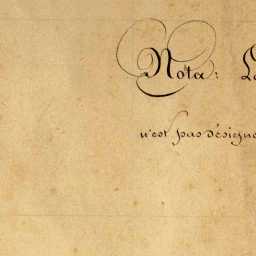 Nota: L
n'est pas désigné